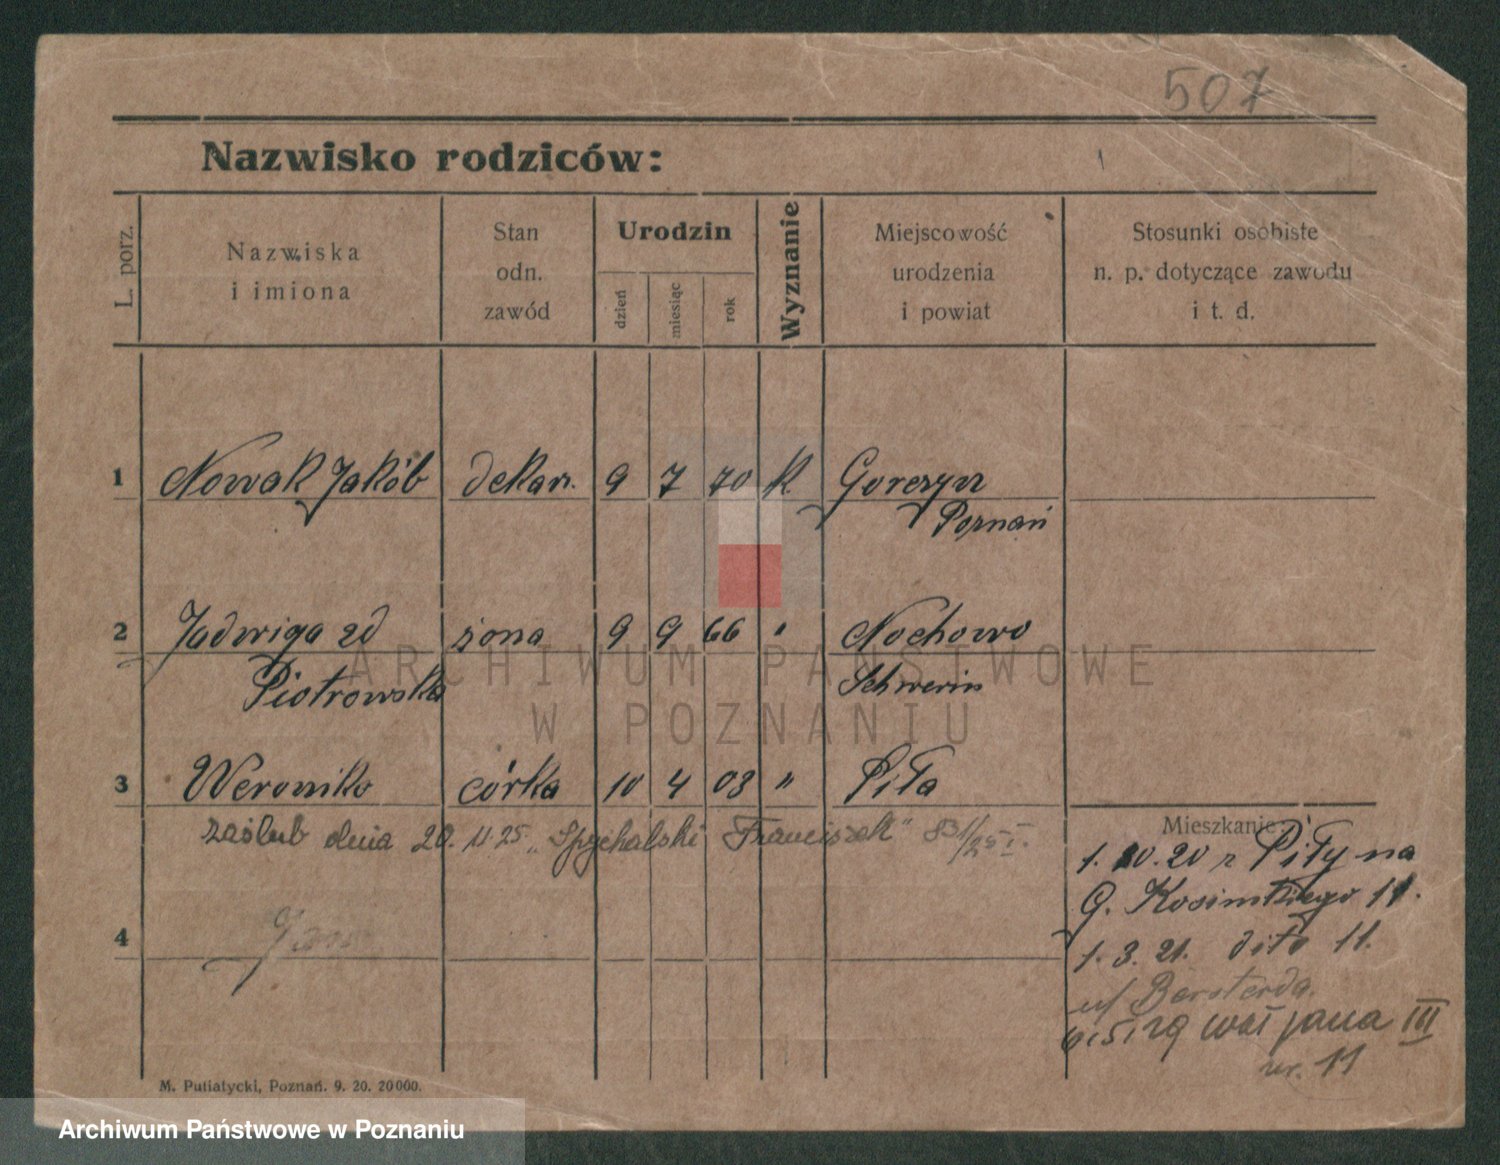 507
Nazwisko rodziców:
L. porz.
Nazwiska
i imiona
Stan
odn.
zawód
Urodzin
dzień
miesiąc
rok
Wyznanie
Miejscowość
urodzenia
i powiat
Stosunki osobiste
n. p. dotyczące zawodu
i t. d.
1 Nowak Jakób dekarz. 9 7 70 k. Gorczyn
Poznań
2 Jadwiga zd żona 9 9 66 " Nochowo
Piotrowska Schwerin
3 Weronika córka 10 4 03 " Piła
zaślub dnia 20. 11 25 „Spychalski Franciszek"
4
Mieszkanie:
1. 10. 20 z Piły na
G. 11.
1. 3. 21. dito 11.
Jana III
nr. 11
M. Putiatycki, Poznań. 9. 20. 20000.
ARCHIWUM PAŃSTWOWE
W POZNANIU
Archiwum Państwowe w Poznaniu